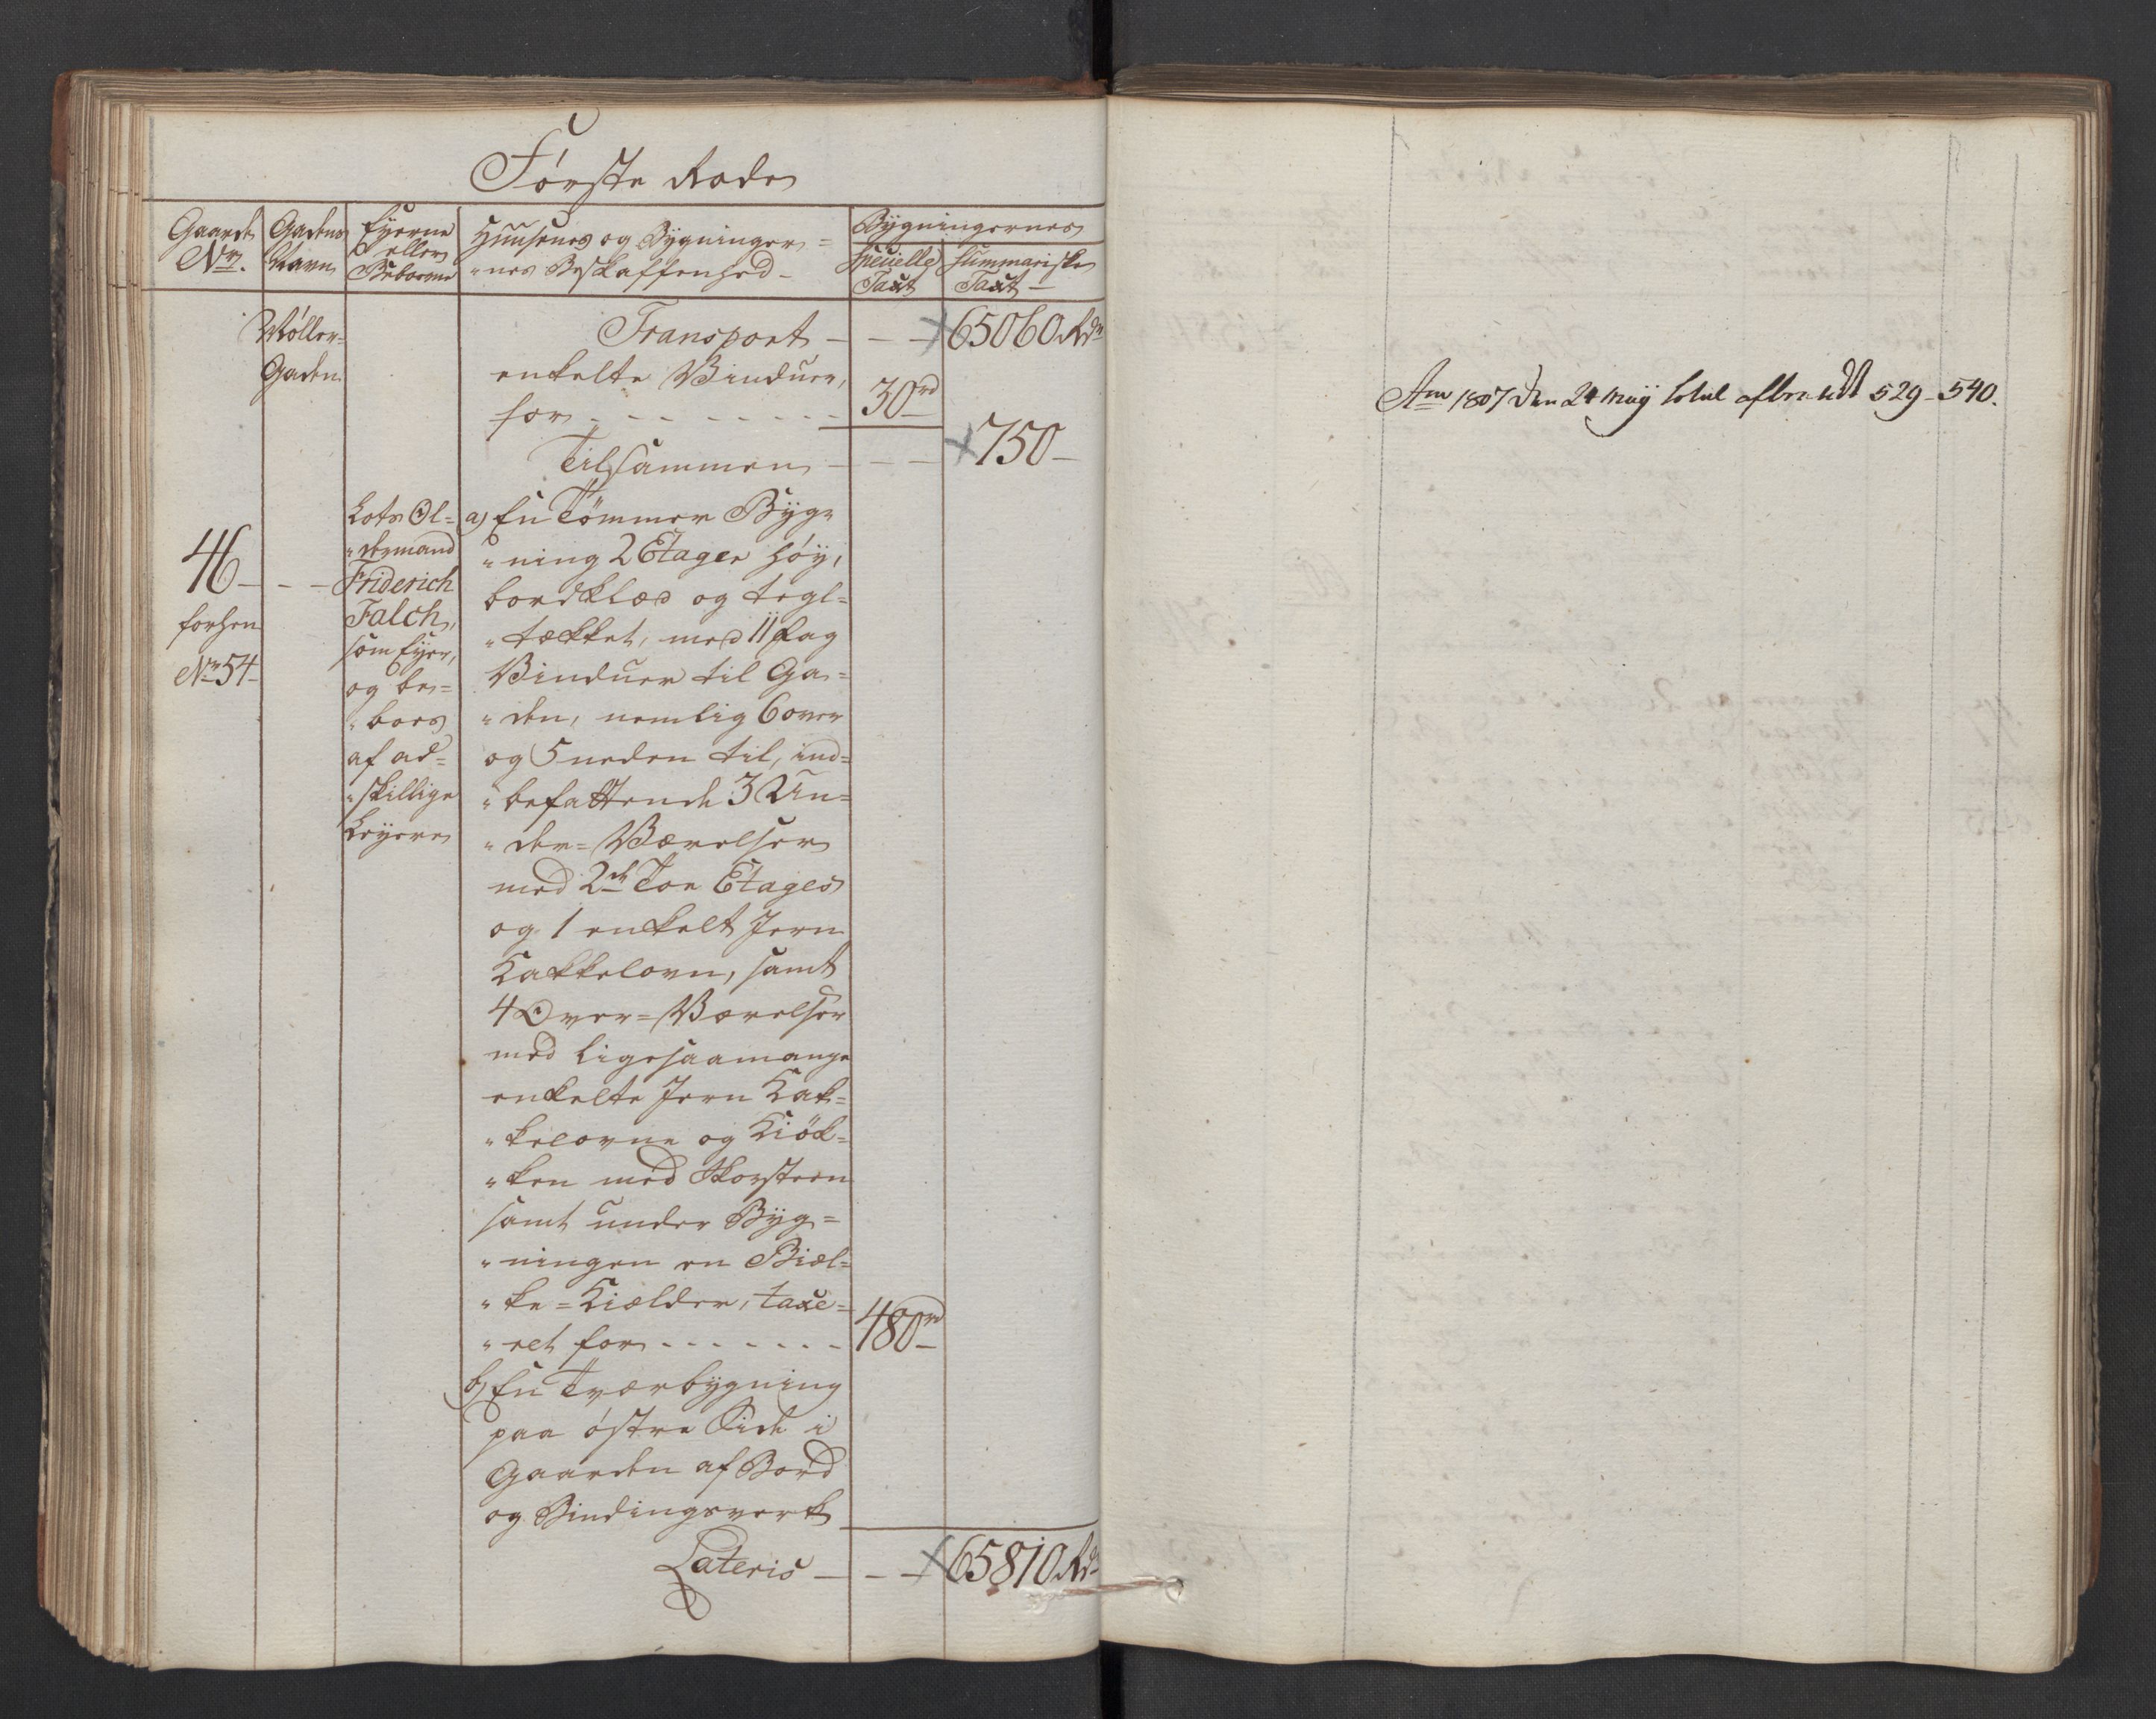 Første Rode
Gaards No.
Gadens Navn
Eyerne eller Beboerne
Huusenes og Bygninger=
"nes Beskaffenhed
Bygningernes
Specielle Taxt
Summariske Taxt
Møller=
Gaden
Transport - - - 65060 Rdr
enkelte Vinduer,
for - - - - - - - 30rd
Tilsammen - - - 750-
46- - -
forhen
No 54-
Lots Ol=
"dermand
Friderich
Falch,
som Eyer,
og be=
"boes
af ad=
"skillige
Leyere
a) En Tömmer Byg=
"ning 2 Etager höy,
bordklæd og tegl=
"tækket, med 11 fag
Vinduer til Ga=
"den, nemlig 6 over
og 5 neden til, ind=
"befattende 3 Un=
"der=Værelser
med 2de Toe Etages
og 1 enkelt Jern
Kakkelovn, samt
4 Over=Værelser
med ligesaamange
enkelte Jern Kak=
"kelovne og Kiök=
"ken med Skorsteen
samt under Byg=
"ningen en Biæl=
"ke=Kielder, taxe=
"ret for - - - - - - - 480rd
b) En Tværbygning
paa østre Side i
Gaarden af Bord
og Bindingsverk
Lateris - - - 65810 Rdr
Ao 1807 den 24 Maÿ 529-540.